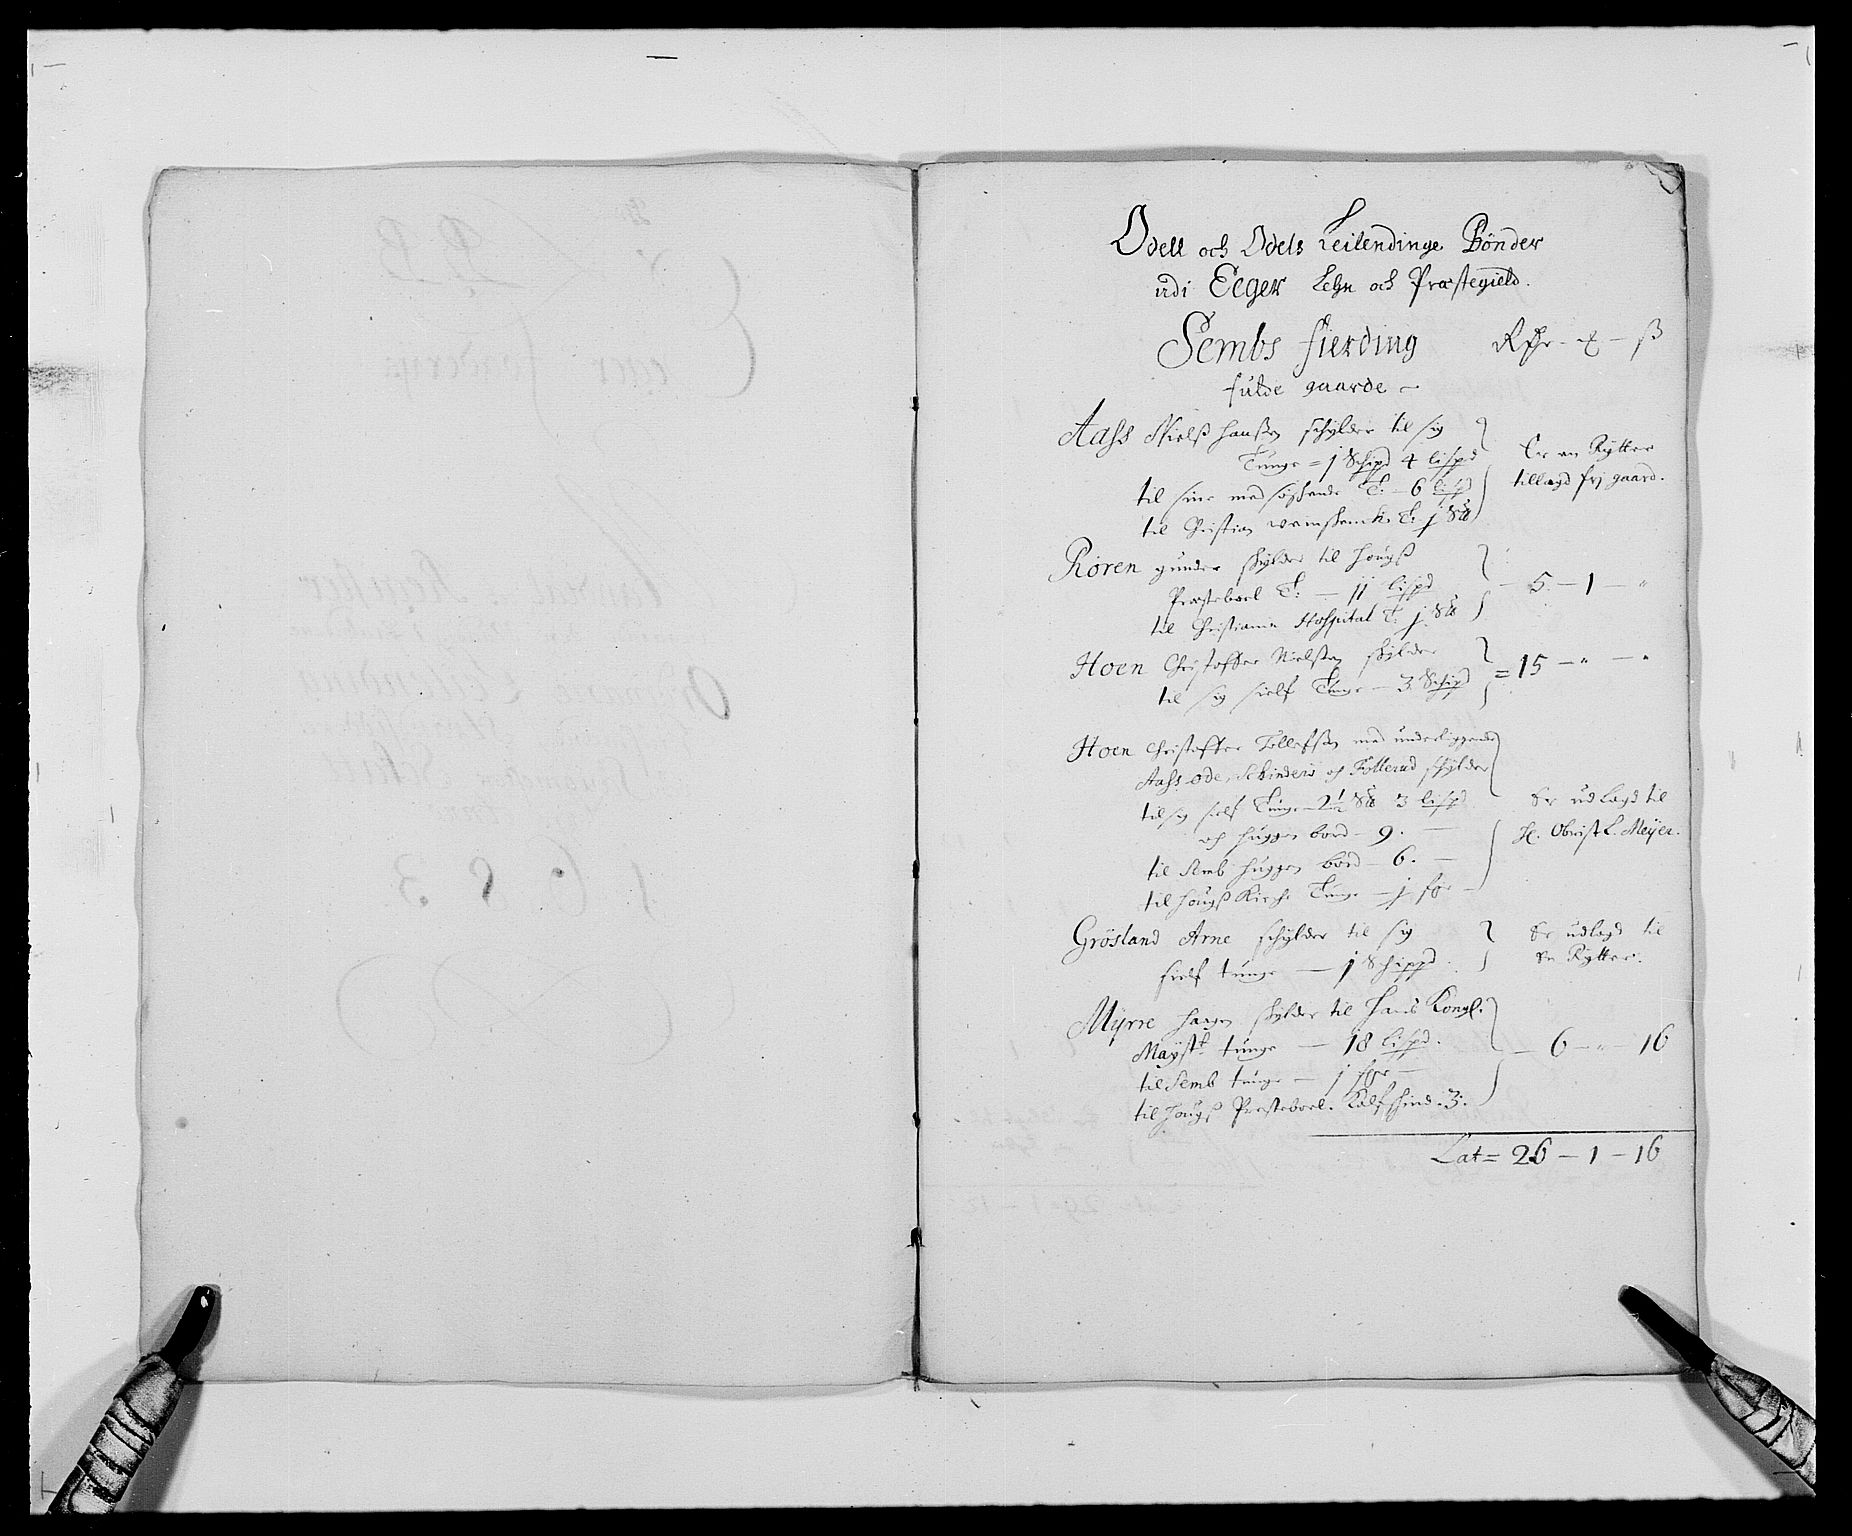 Odell och Odels Leilendinge Bönder
udi Eeger Lehn och Præstegield.
Sembs fierding Rdr - x - ß
fulde gaarde -
Aass Nielß Hanßen schylder til sig
Tunge = j Schipd 4 lispd
til sine med søskende T: - 6 lispd
til Christian T: j S℔
Er en Rytter
tillagd frj gaard.
Roren gunder schylder til Hougß
Præsteboel T: - 11 lispd
til Christiania Hospital T. j S℔
- 5 - 1 - "
Hoen Christoffer Nielßen schylder
til sig sielf Tunge - 3 Schipd
= 15 - " - "
Hoen Christoffer Tollefßen med underliggende
Aass øde, Schinders och Follerud schylder
til sig sielf Tunge 2½ S℔ 3 lispd
och huggen bord - 9. -
til Semb huggen bord - 6. -
til Hougß Kirche Tunge - j
Er udlagd til
H. Obrist L. Meÿer.
Grösland Arne schylder til sig
sielf tunge - j Schippd.
Er udlagd til
En Rytter.
Mÿrre Haagen schylder til Hans Kongl.
Maÿst. tunge - 18 lispd.
til Semb tunge - j
til Hougß Præsteboel. Kalfschind. 3.
- 6 - " - 16
Lat = 26 - 1 - 16